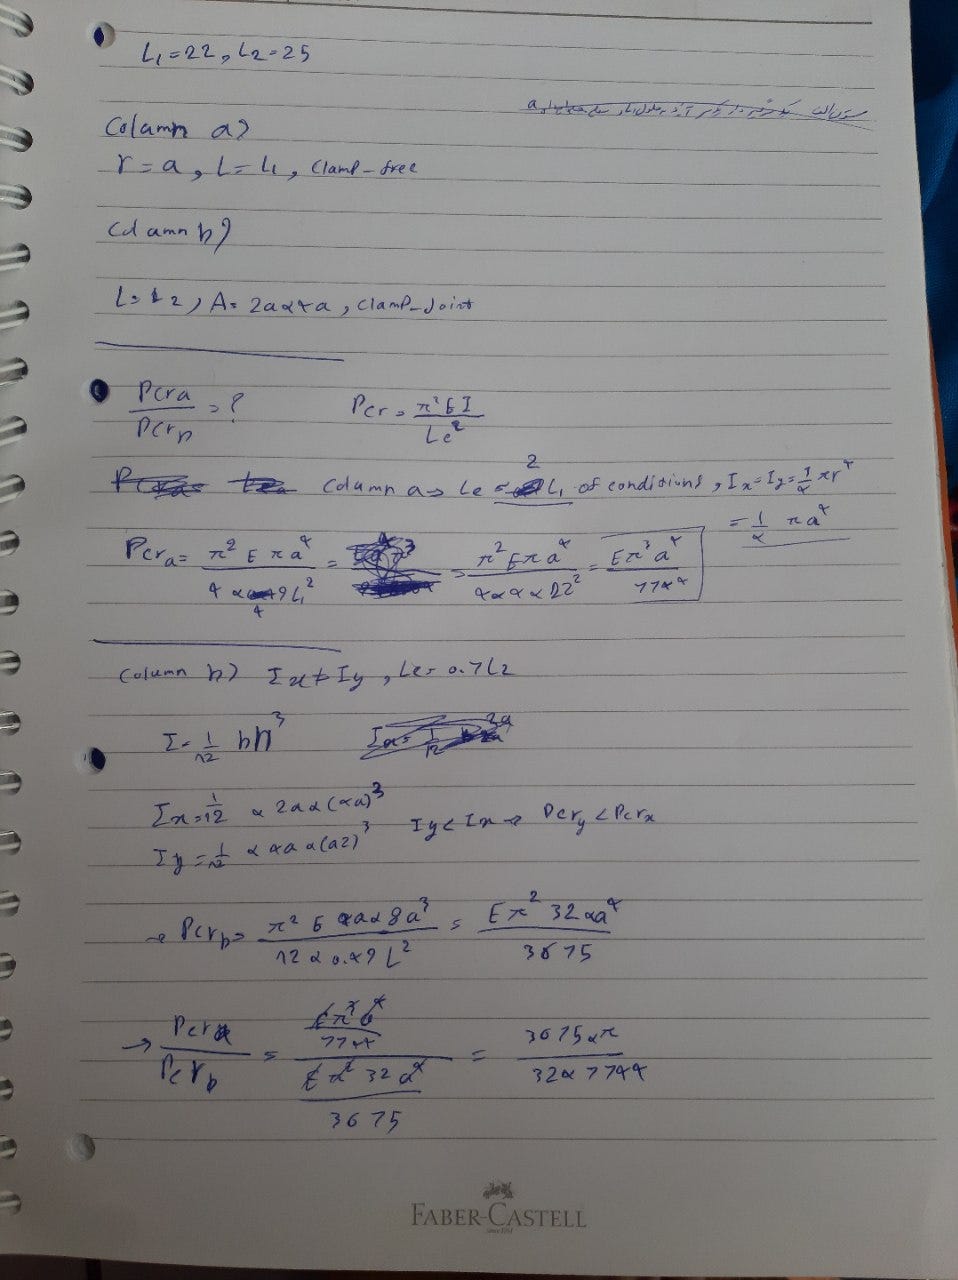 L₁=22, L₂=25
ستون الف
a
Column a)
r=a, L=L₁, Clamp-free
Column b)
L=L2, A=2a×4a, Clamp-Joint
Pcra/Pcrb = ? Pcr = π²EI/Le²
Column a → Le = 2L₁ of conditions, Ix=Iy=1/4 πr⁴
= 1/4 πa⁴
Pcra = π²Eπa⁴/4×4L₁² = = π²Eπa⁴/4×4×22² = Eπ³a⁴/7744
Column b) Ix≠Iy, Le=0.7L2
I=1/12 bh³
Ix=1/12 × 2a×(4a)³
Iy=1/12 × 4a×(a2)³ Iy<Ix → Pcry<Pcrx
→ Pcrb = π²E4a×8a³/12×0.49L² = Eπ²32×a⁴/3675
→ Pcra/Pcrb = Eπ³a⁴/7744 / Eπ²32a⁴/3675 = 3675×π/32×7744
FABER-CASTELL
since 1761